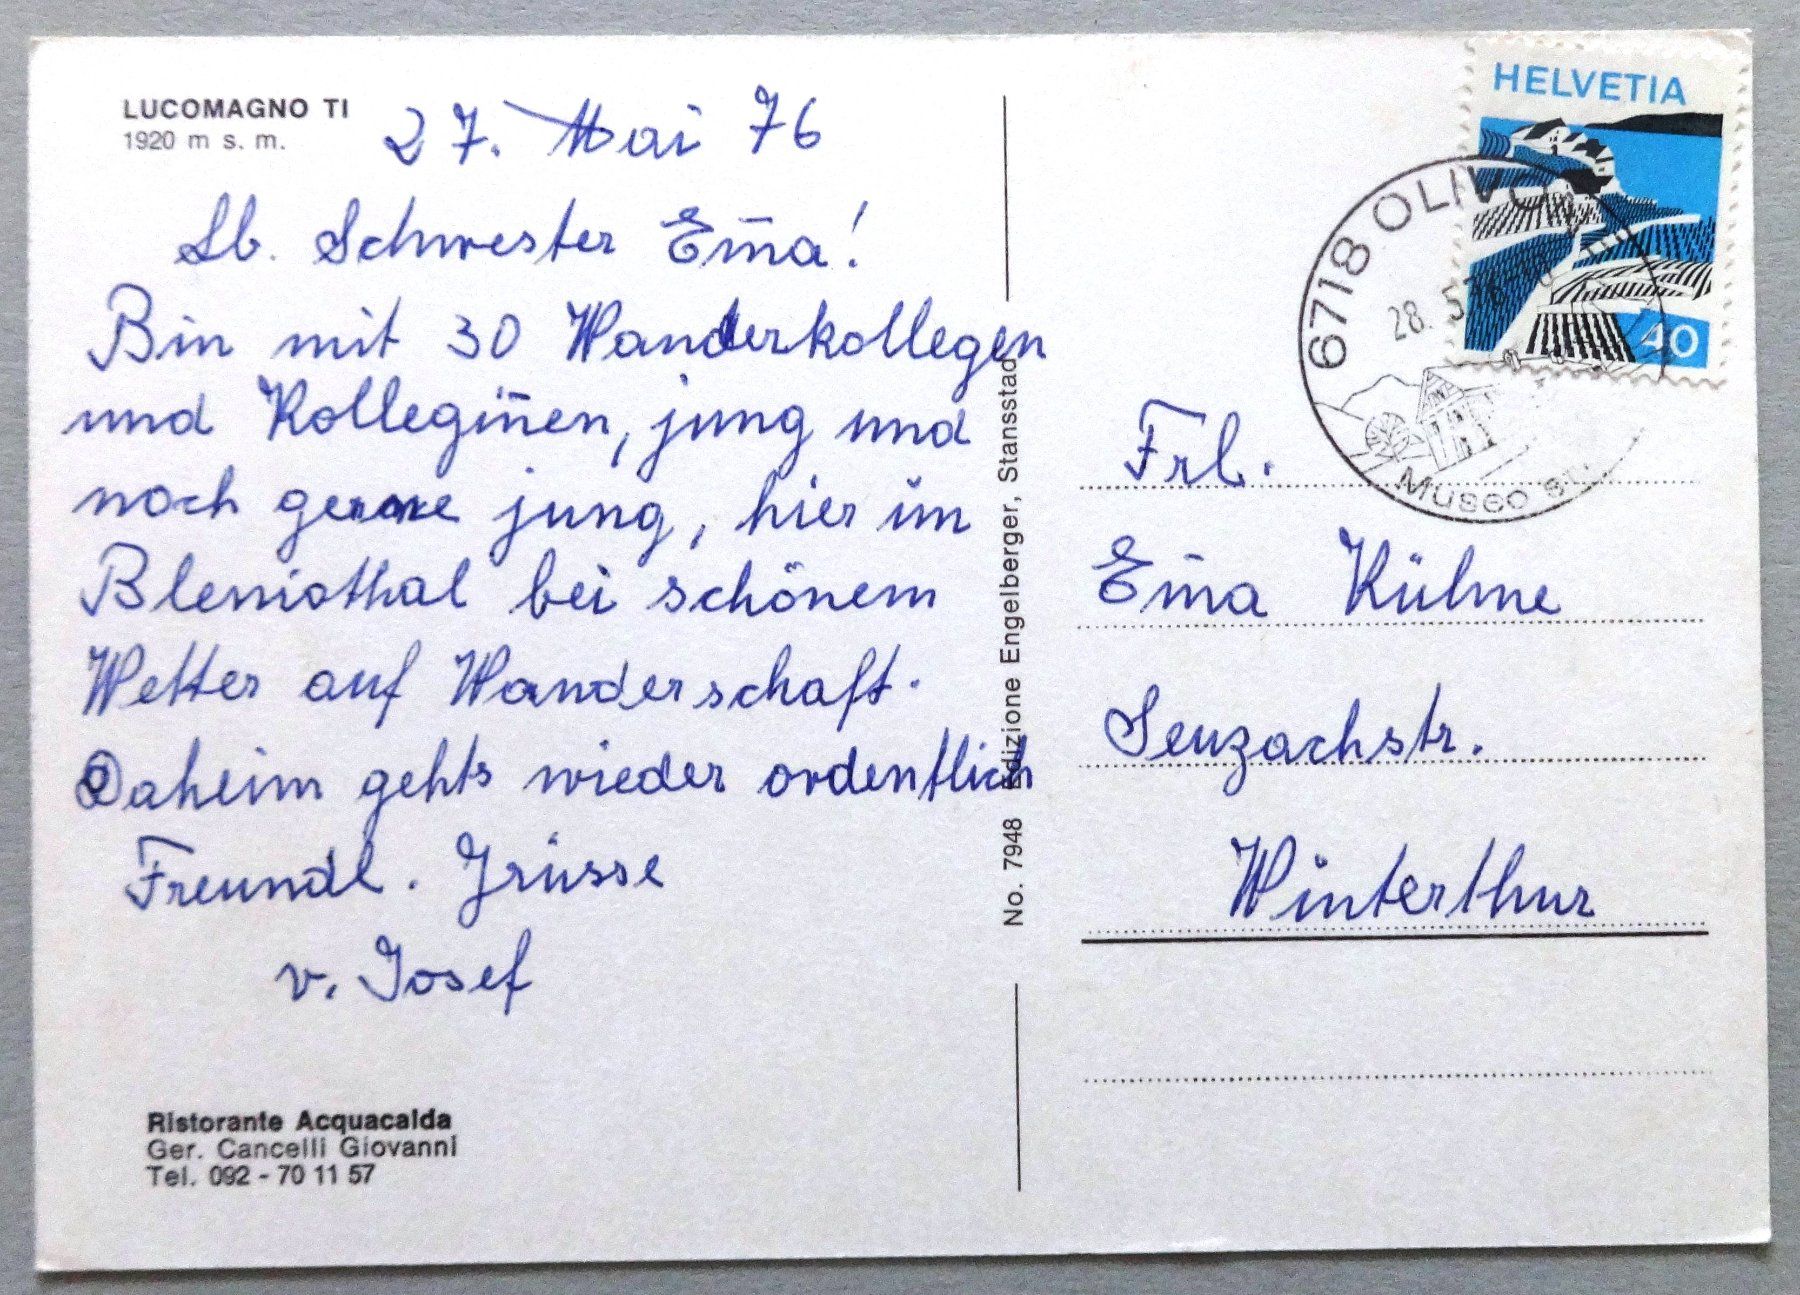 LUCOMAGNO TI
1920 m s. m.
27. Mai 76
Lb. Schwester Em̄a!
Bin mit 30 Wanderkollegen
und Kollegin̄en, jung und
noch gerne jung, hier im
Bleniothal bei schönem
Wetter auf Wanderschaft.
Daheim gehts wieder ordentlich
Freundl. Grüsse
v. Josef
Ristorante Acquacalda
Ger. Cancelli Giovanni
Tel. 092 - 70 11 57
No. 7948 Edizione Engelberger, Stansstad
HELVETIA
40
6718 OLIVONE
28. 5. 76
Museo
Frl.
Em̄a Kühne
Seuzachstr.
Winterthur